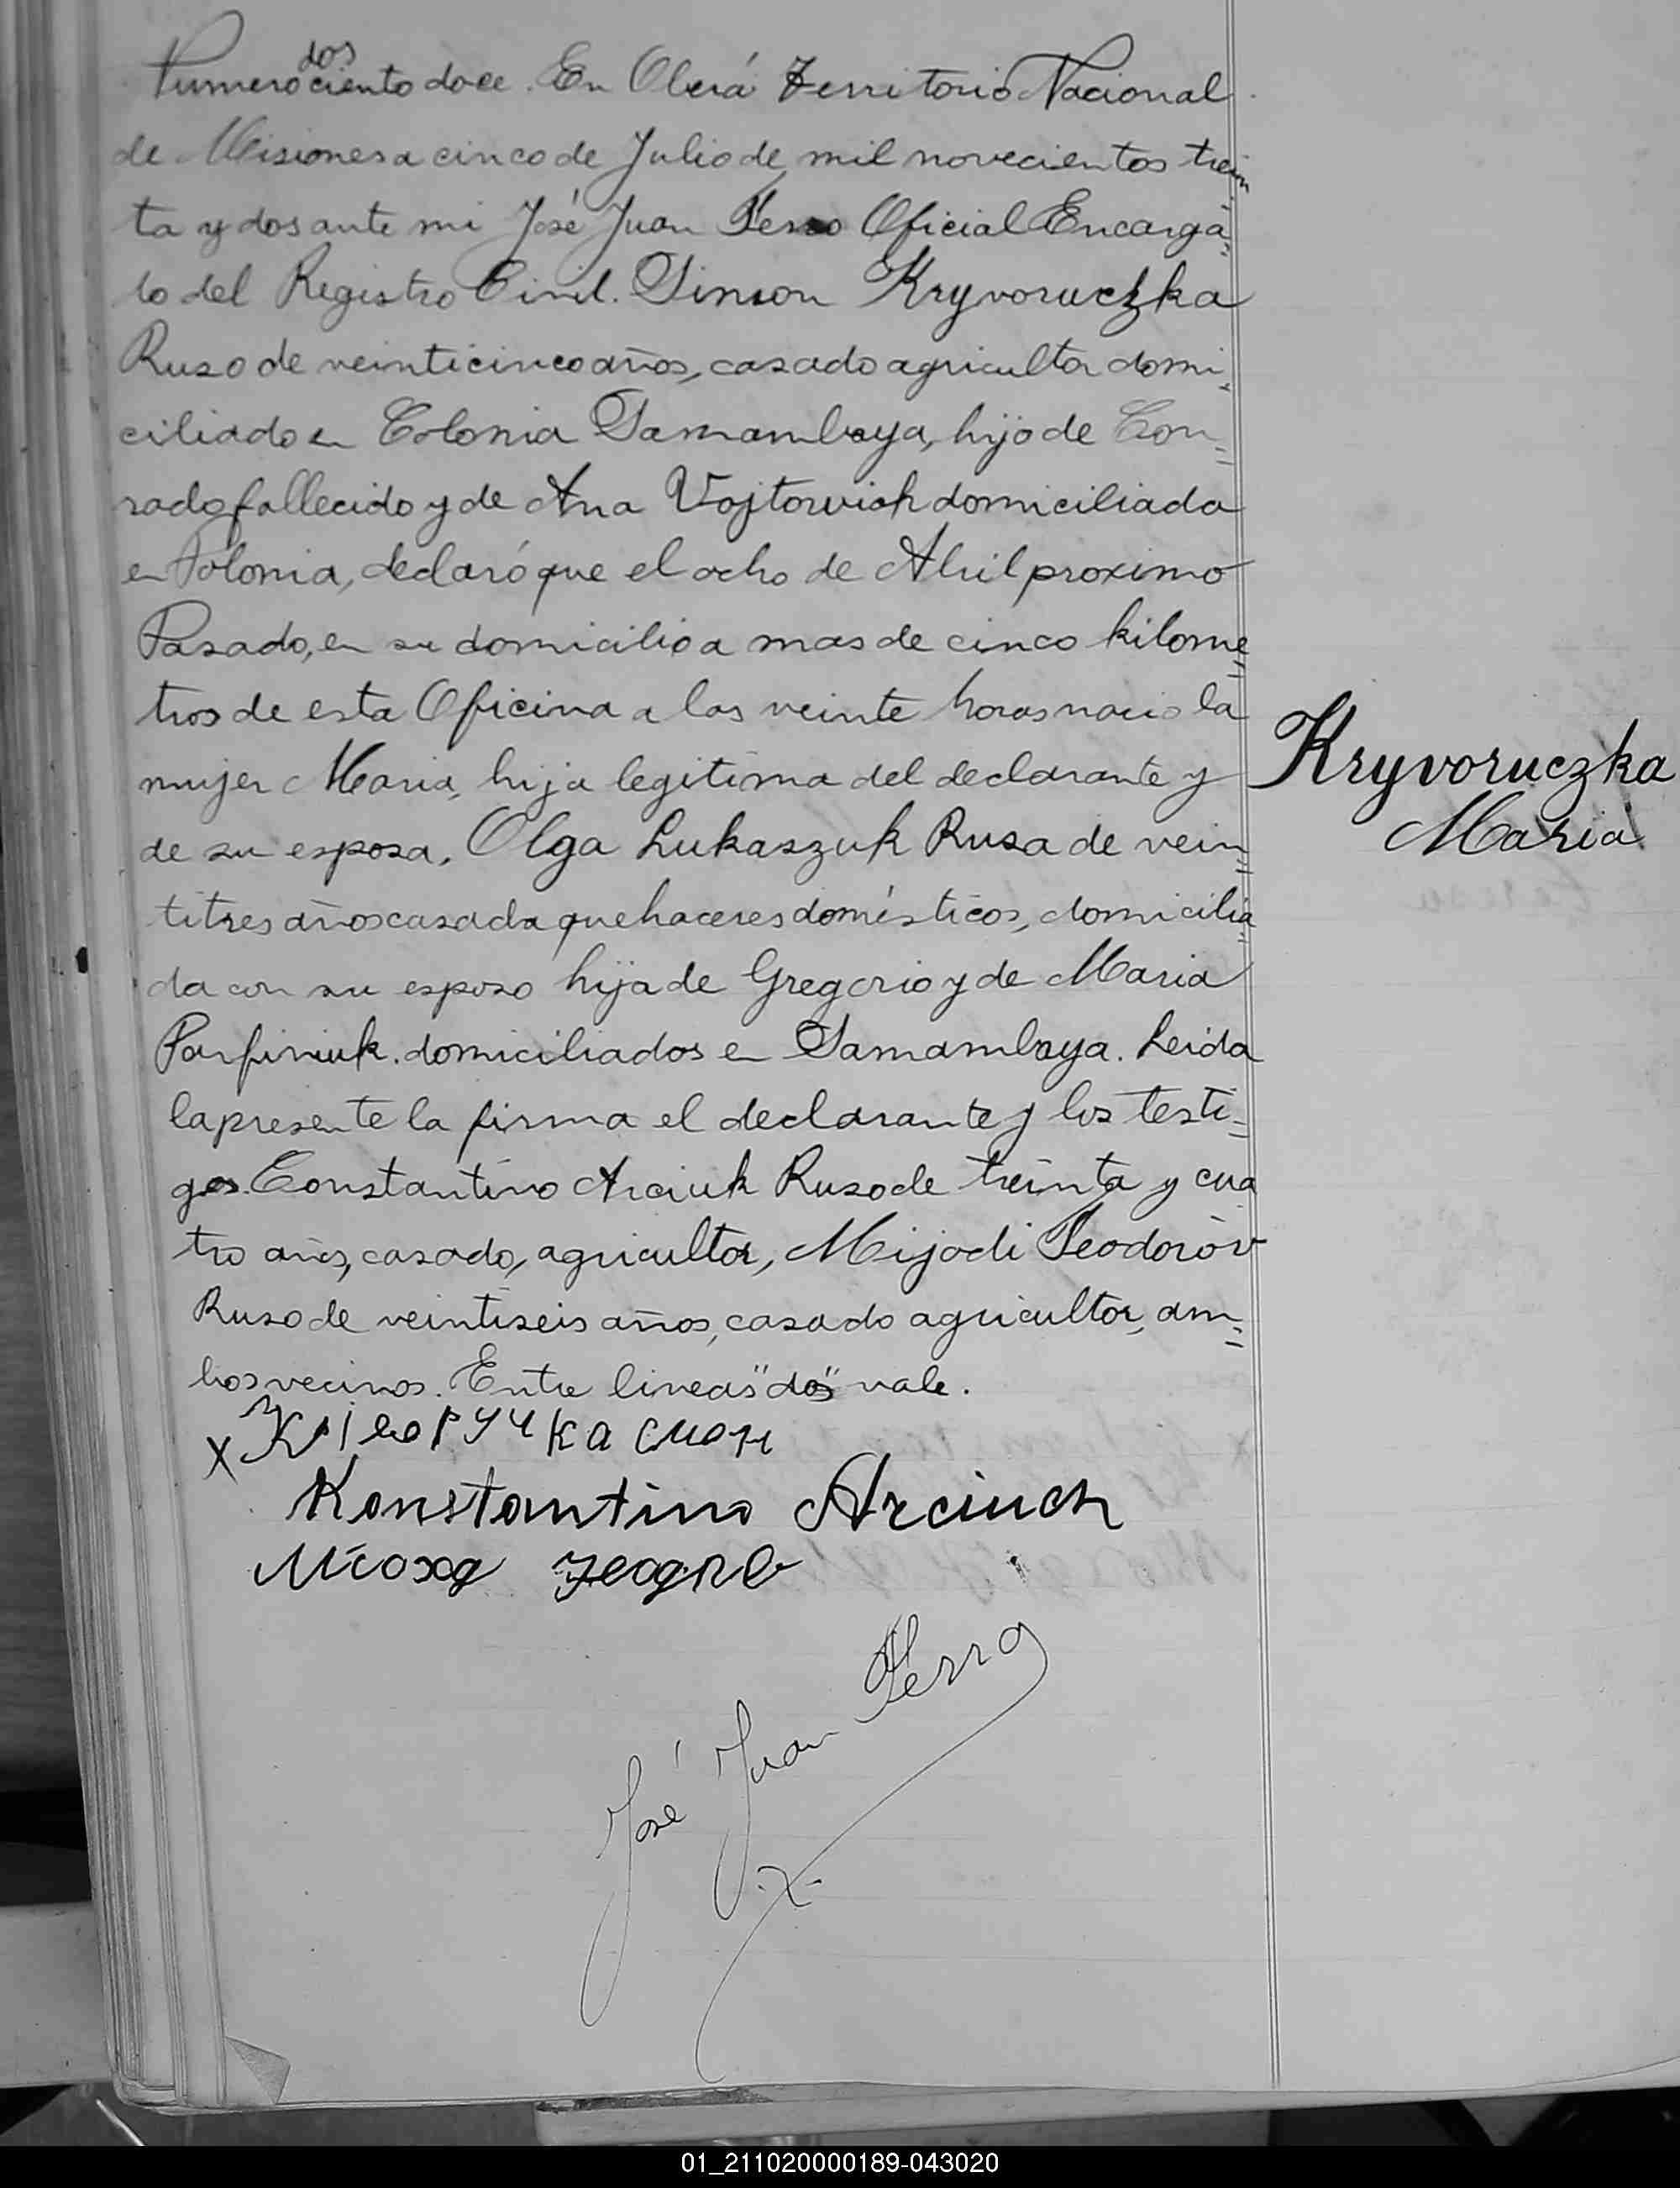 Numero dosciento doce. En Oberá Territorio Nacional
de Misiones a cinco de Julio de mil novecientos trein
ta y dos ante mi José Juan Ferro Oficial Encarga=
do del Registro Civil. Simon Kryvoruczka
Ruso de veinticinco años, casado agricultor domi=
ciliado en Colonia Samambaya, hijo de Con=
rado fallecido y de Ana Vojtovich domiciliada
en Polonia, declaró que el ocho de Abril proximo
Pasado, en su domicilio a mas de cinco kilome=
tros de esta Oficina a las veinte horas nacio la
mujer Maria, hija legitima del declarante y
Kryvoruczka
Maria
de su esposa, Olga Lukaszuk Rusa de vein=
titres años casada quehaceres domésticos, domicilia=
da con su esposo hija de Gregorio y de Maria
Parfiniuk. domiciliados en Samambaya. Leida
la presente la firma el declarante y los testi=
gos. Constantino Arciuk Ruso de treinta y cua
tro años, casado, agricultor, Mijodi Feodorov
Ruso de veintiseis años, casado agricultor, am=
bos vecinos. Entre lineas "dos" vale.
x Кріворучка Смон
Konstantino Arciuch
José Juan Ferro